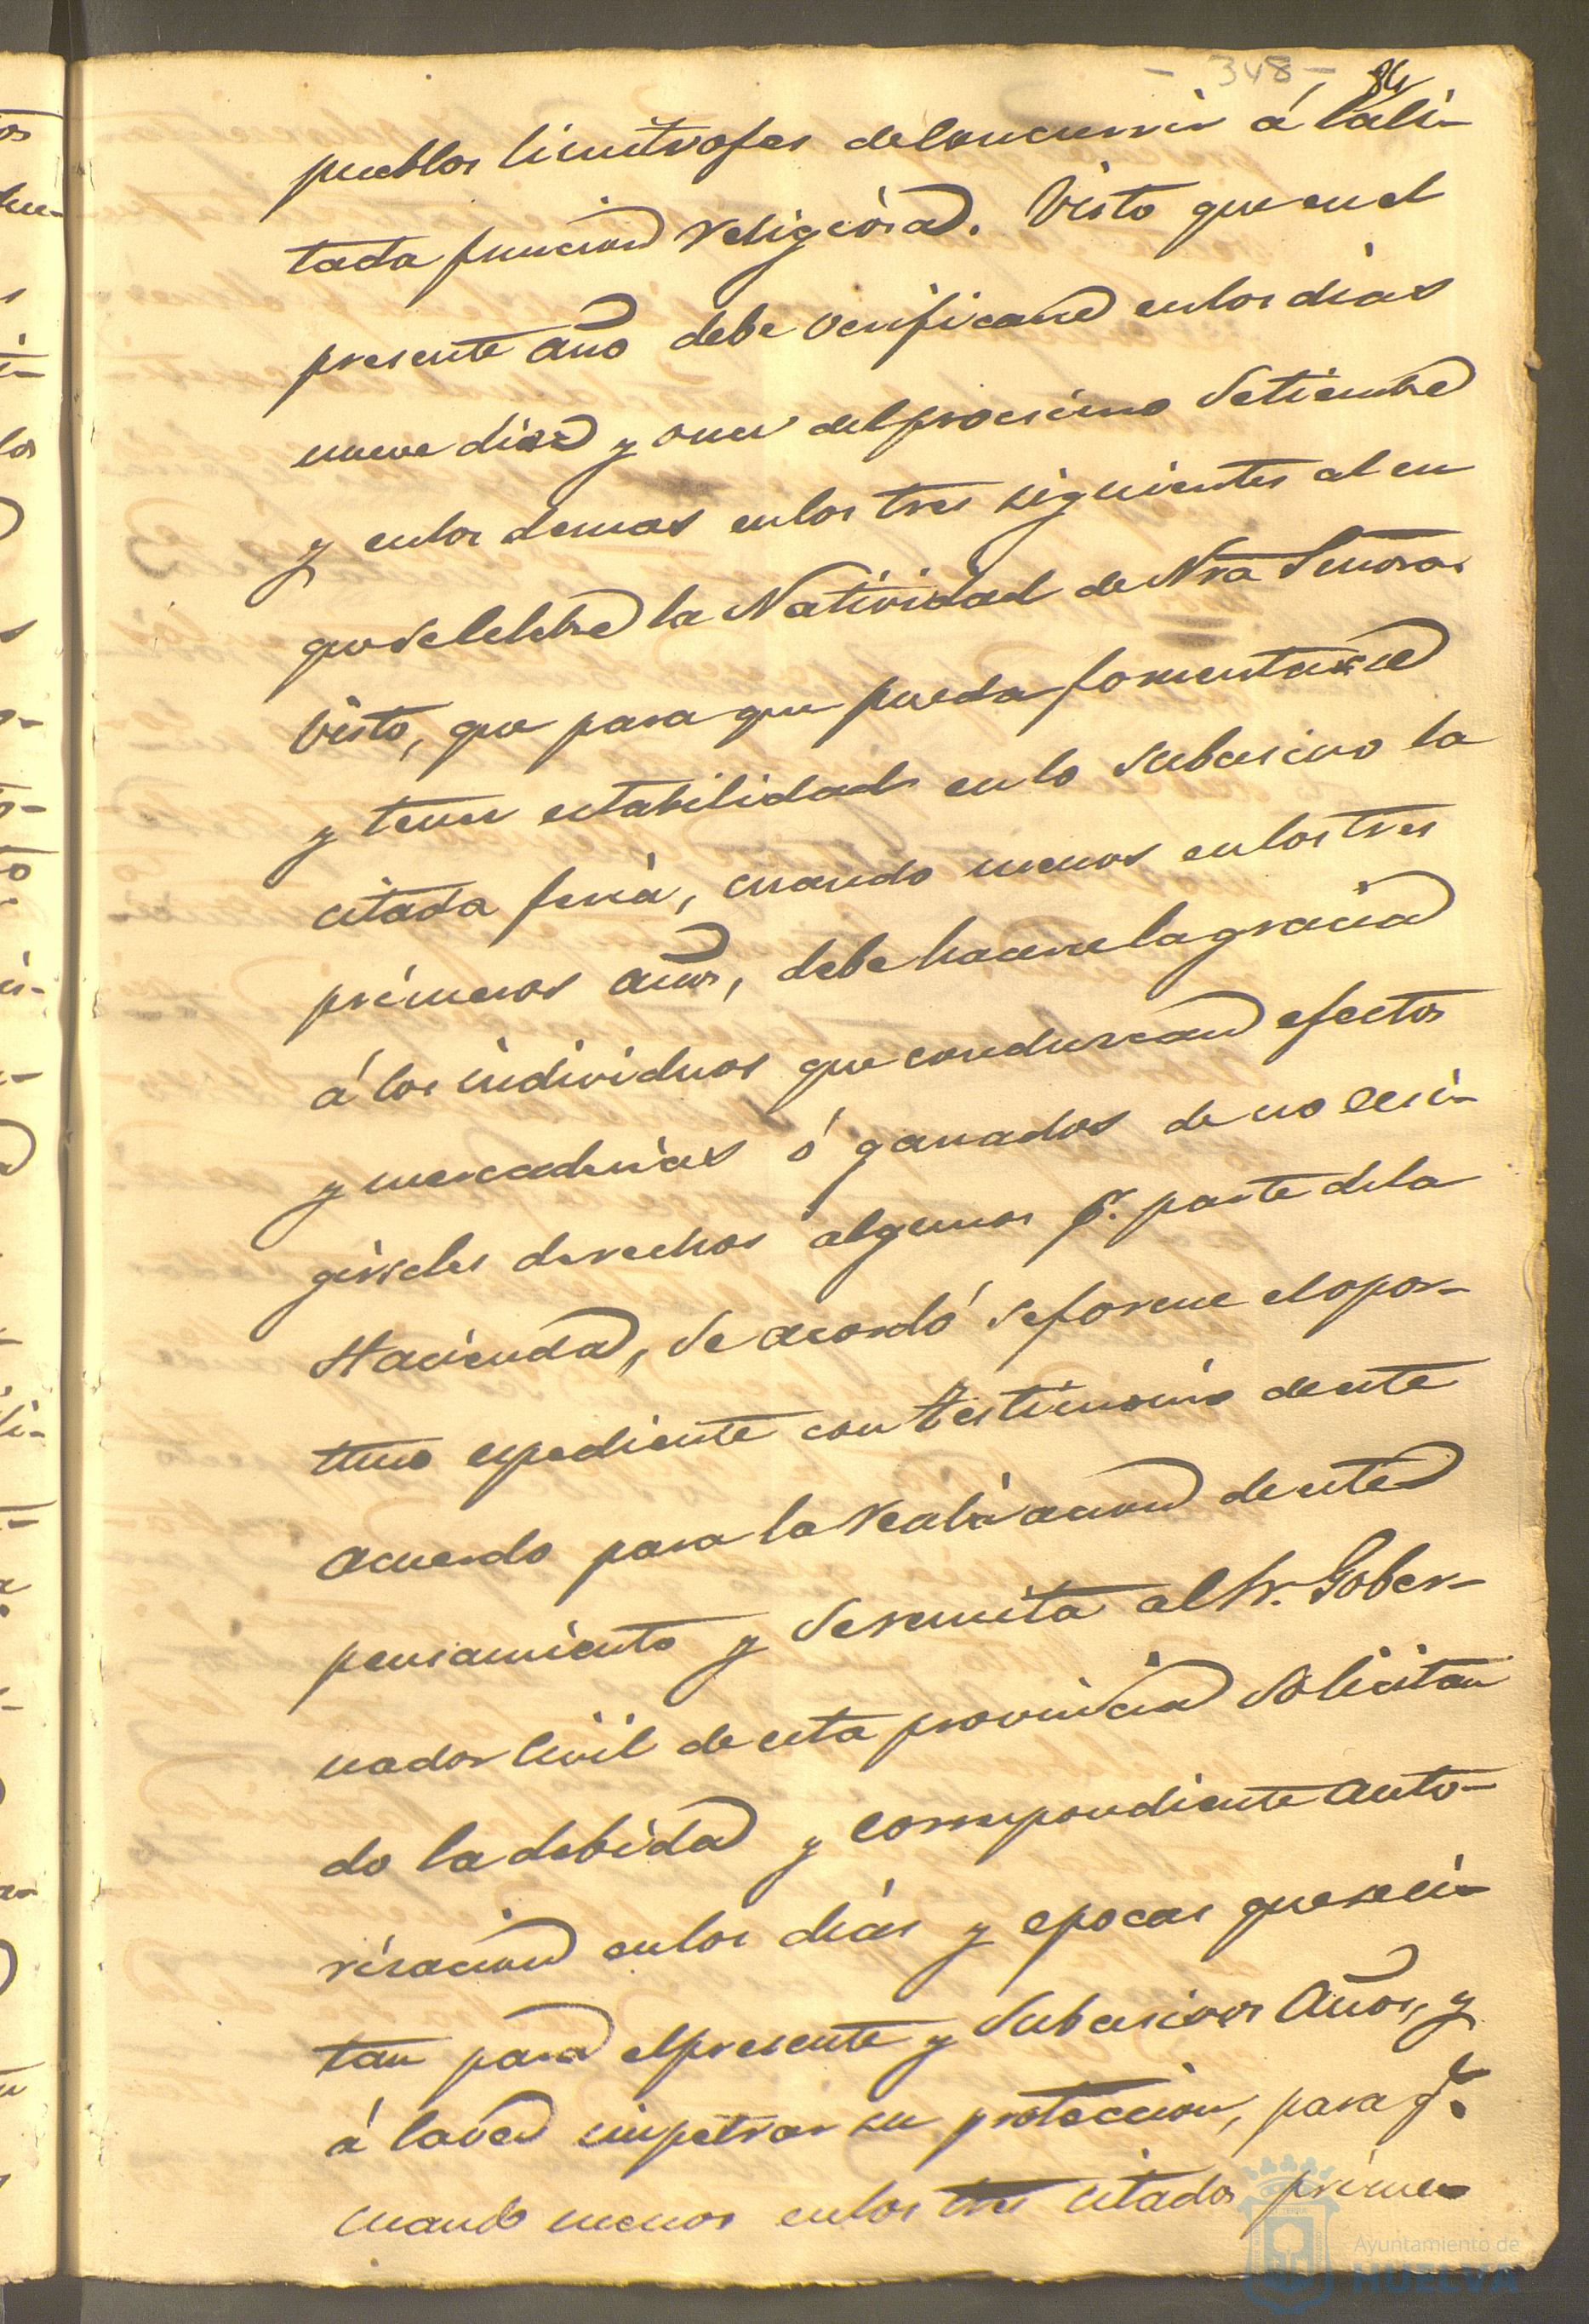 - 348 - 84
pueblos limitrofes de concurrir á la ci-
tada funcion religiosa. Visto que en el
presente año debe verificarse en los dias
nueve diez y once del procsimo Setiembre
y en los demas en los tres siguientes al en
que se celebre la Natividad de Nra Señora.
Visto, que para que pueda fomentarse
y tener estabilidad en lo subcesivo la
citada feria, cuando menos en los tres
primeros años, debe hacerse la gracia
á los individuos que conduzcan efectos
y mercaderias ó ganados de no ecsi-
girseles derechos algunos pr. parte de la
Hacienda, se acordó se forme el opor-
tuno espediente con testimonio de este
acuerdo para la realizacion de este
pensamiento y se remita al Sr. Gober-
nador Civil de esta provincia solicitan
do la debida y correspondiente auto-
risacion en los dias y epocas que se ci-
tan para el presente y subcesivos años, y
á la vez impetrar su proteccion, para qe.
cuando menos en los tres citados prime-
Ayuntamiento de
HUELVA